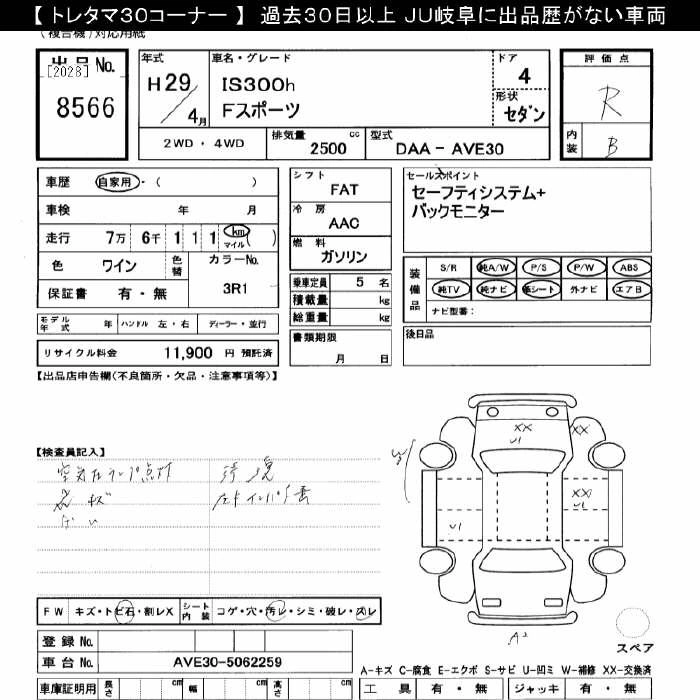 【 トレタマ30コーナー 】 過去30日以上 JU岐阜に出品歴がない車両
(複合機)対応用紙
出品 No.
[2028]
8566
年式
H29
4月
車名・グレード
IS300h
Fスポーツ
ドア
4
形状
セダン
2WD ・ 4WD
排気量
2500 cc
型式
DAA - AVE30
評価点
R
内装
B
車歴 自家用 ・ ( )
車検 年 月
走行 7万 6千 1 1 1 km マイル ( )
色 ワイン
色替
カラーNo.
3R1
保証書 有・無
シフト
FAT
冷房
AAC
燃料
ガソリン
乗車定員 5 名
積載量 kg
総重量 kg
書類期限
月 日
セールスポイント
セーフティシステム+
バックモニター
装備品
S/R 純A/W P/S P/W ABS
純TV 純ナビ 革シート 外ナビ エアB
ナビ型番:
後日品
モデル年式 年 ハンドル 左・右 ディーラー・並行
リサイクル料金 11,900 円 預託済
【出品店申告欄(不良箇所・欠品・注意事項等)】
【検査員記入】
XX
U1
XX
XX
U1
U1
A2
FW キズ・トビ石・割レX
シート内装 コゲ・穴・汚レ・シミ・破レ・スレ
登録 No.
車台 No. AVE30-5062259
車庫証明用 長さ cm 幅 cm 高さ cm
スペア
A-キズ C-腐食 E-エクボ S-サビ U-凹ミ W-補修 XX-交換済
工具 有・無 ジャッキ 有・無